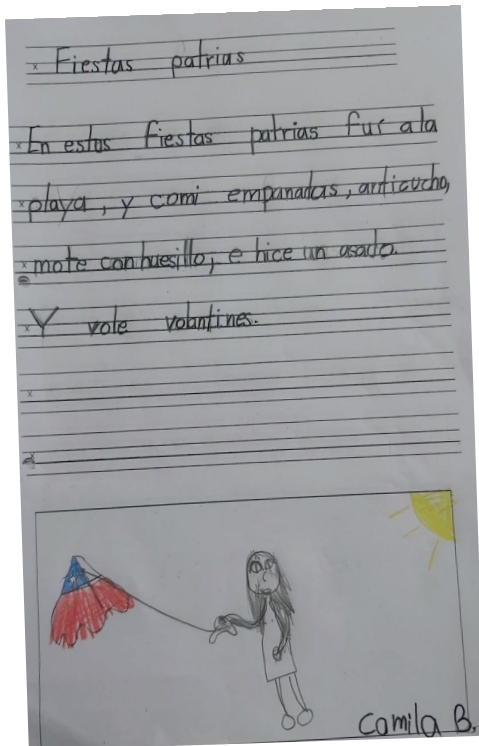 Fiestas patrias
En estas fiestas patrias fui a la
playa, y comi empanadas, anticucho,
mote con huesillo, e hice un asado.
Y vole volantines.
Camila B.